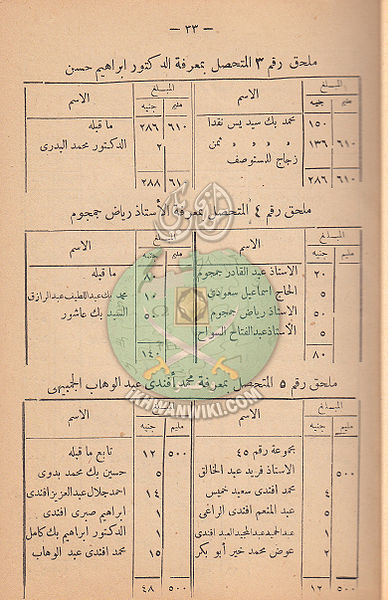 — ٣٣ —
ملحق رقم ٣ المتحصل بمعرفة الدكتور ابراهيم حسن
المبلغ
الاسم
مليم
جنيه
١٥٠ محمد بك سيد يس نقدا
٦١٠ ١٣٦ » » » » ثمن
زجاج للمستوصف
٦١٠ ٢٨٦
المبلغ
الاسم
مليم
جنيه
٦١٠ ٢٨٦ ما قبله
٢ الدكتور محمد البدرى
٦١٠ ٢٨٨
ملحق رقم ٤ المتحصل بمعرفة الأستاذ رياض جمجوم
المبلغ
الاسم
مليم
جنيه
٢٠ الاستاذ عبد القادر جمجوم
٥٠ الحاج اسماعيل سعودى
٥ الاستاذ رياض جمجوم
٥ الأستاذ عبد الفتاح السواح
٨٠
المبلغ
الاسم
مليم
جنيه
ما قبله
١٠ محمد بك عبد اللطيف عبد الرازق
السيد بك عاشور
١٤٠
ملحق رقم ٥ المتحصل بمعرفة محمد أفندى عبد الوهاب
المبلغ
الاسم
مليم
جنيه
مجموعة رقم ٤٥
٥٠٠ الاستاذ فريد عبد الخالق
٤ محمد افندى سعيد خميس
٥ عبد المنعم افندى الراغى
١ عبد الحميد عبد المجيد العبد افندى
٢ عوض محمد خير أبو بكر
٥٠٠ ١٢
المبلغ
الاسم
مليم
جنيه
٥٠٠ ١٢ تابع ما قبله
٥ حسين بك محمد بدوى
١٤ احمد جلال عبد العزيز افندى
١ ابراهيم صبرى افندى
١ الدكتور ابراهيم بك كامل
١٥ محمد افندى عبد الوهاب
٥٠٠ ٤٨
IKHWANWIKI.COM